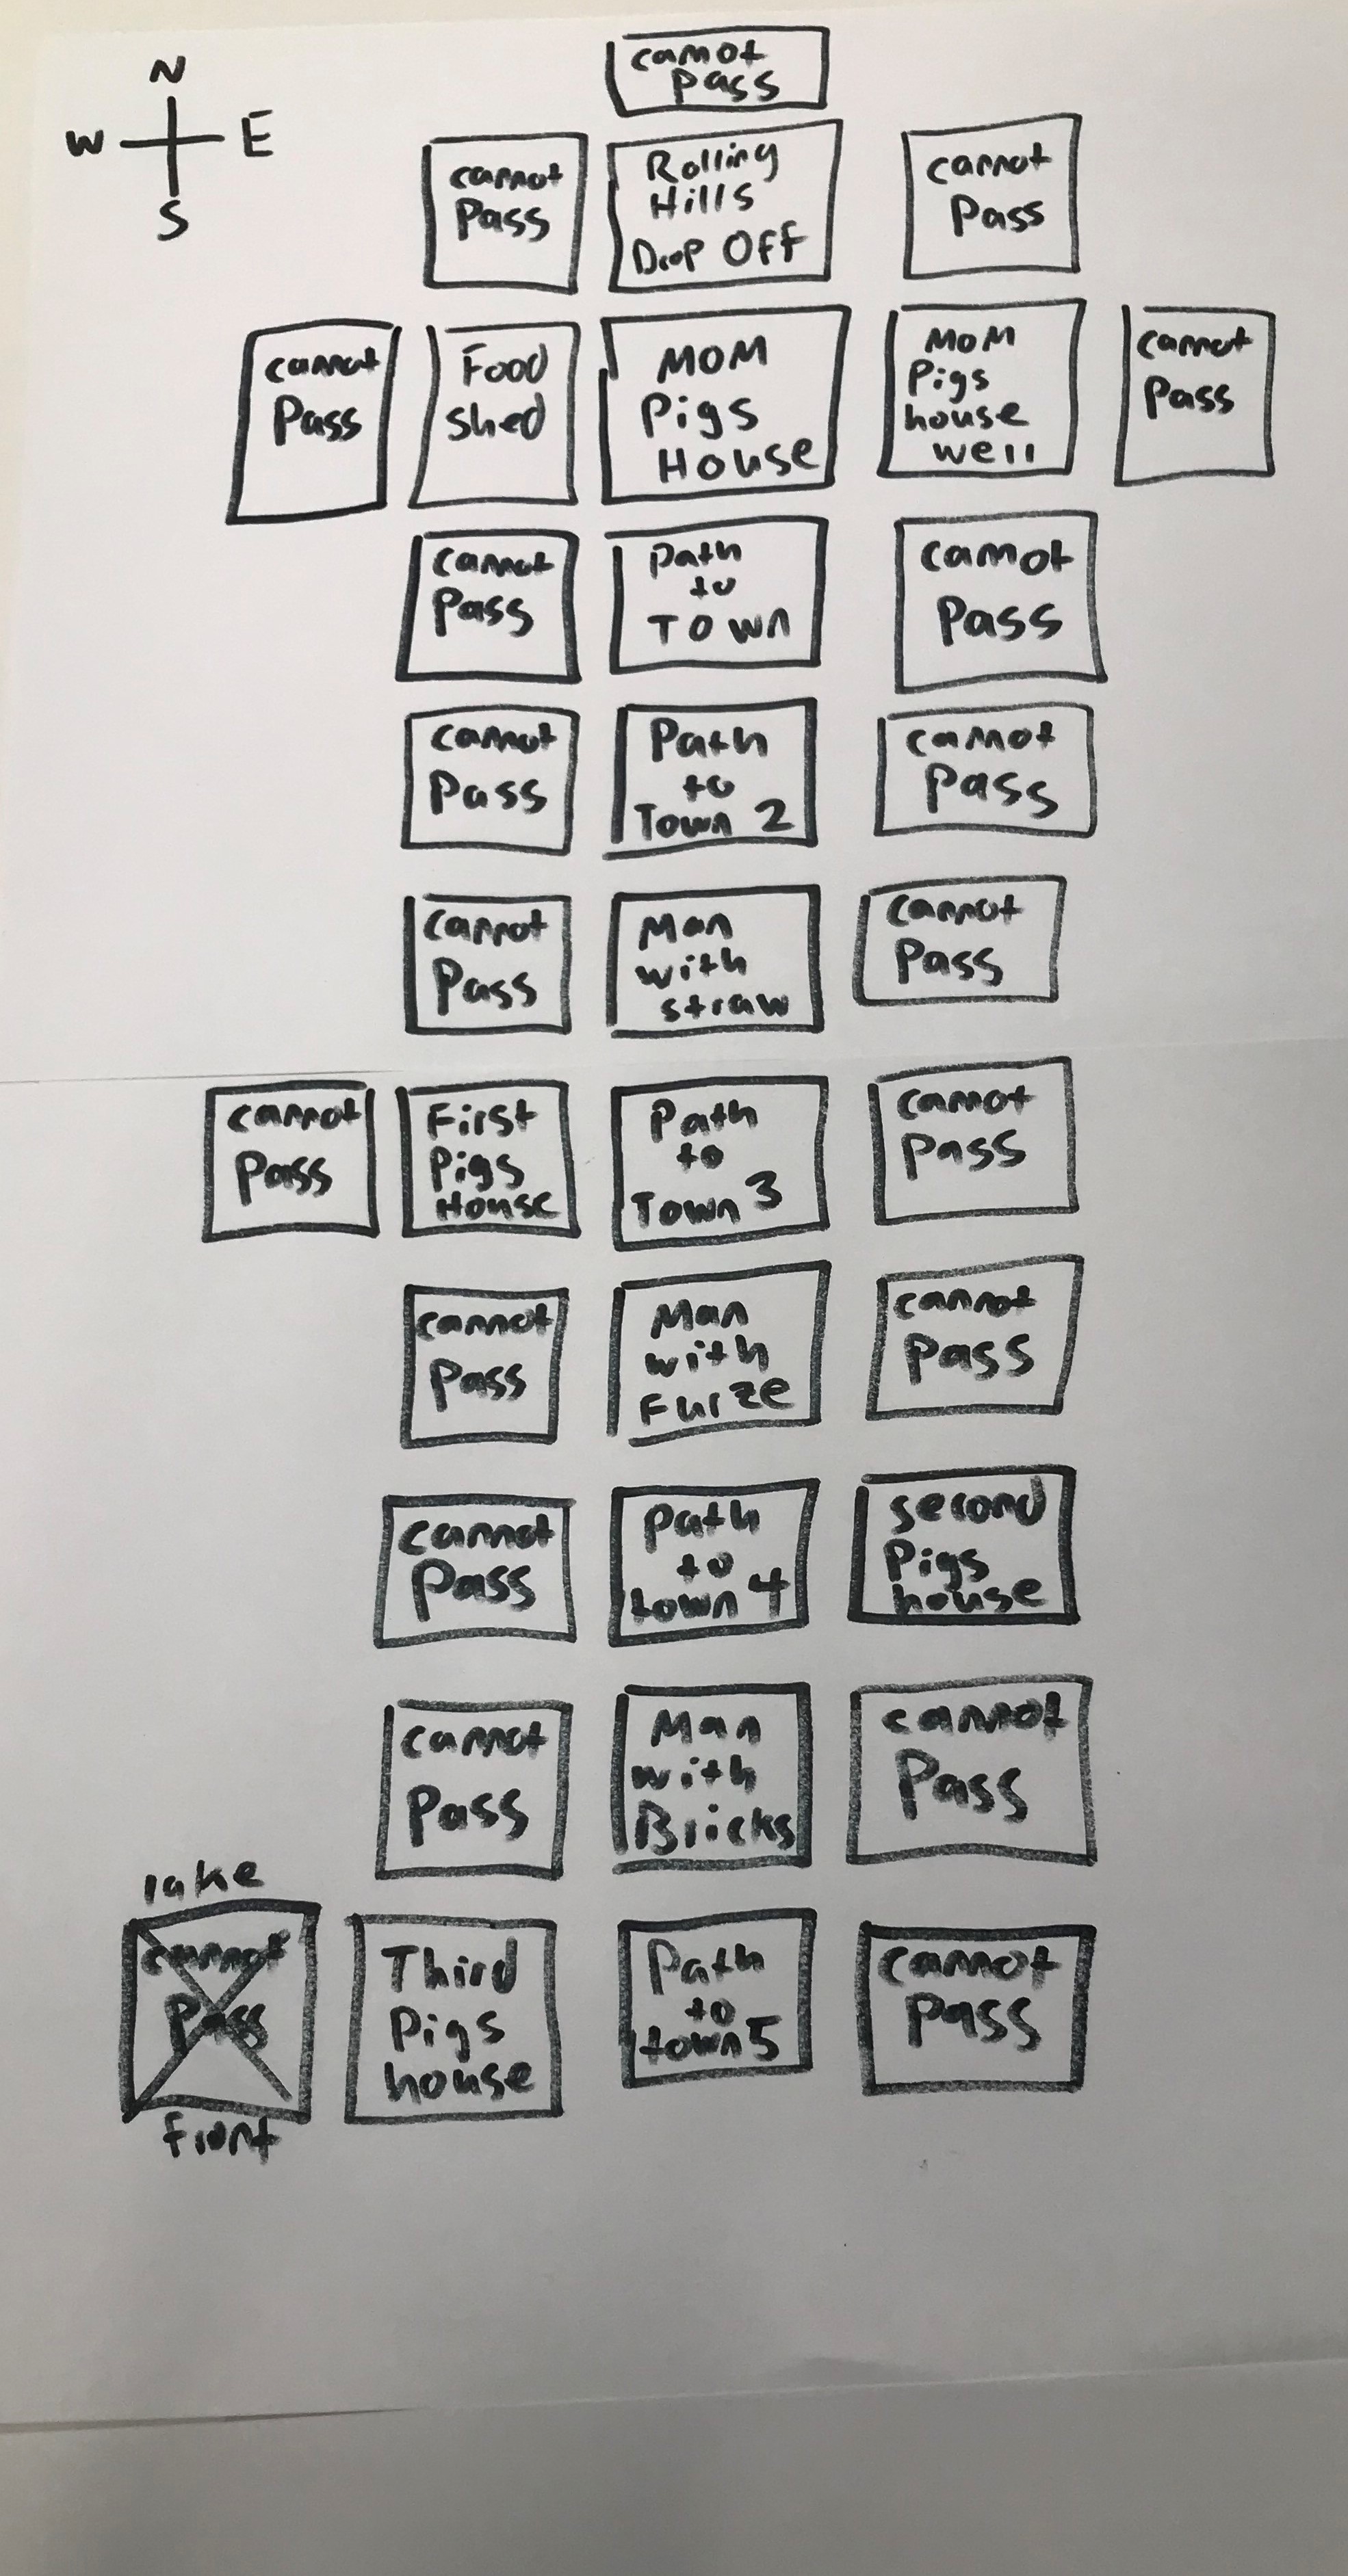 N
W E
S
cannot
pass
cannot
Pass
Rolling
Hills
Drop Off
cannot
Pass
cannot
Pass
Food
shed
MOM
Pigs
House
MOM
Pigs
house
well
cannot
Pass
cannot
Pass
Path
to
TOWN
cannot
Pass
cannot
Pass
Path
to
Town 2
cannot
Pass
cannot
Pass
Man
with
straw
cannot
Pass
cannot
Pass
First
Pigs
House
Path
to
Town 3
cannot
Pass
cannot
Pass
Man
with
Furze
cannot
Pass
cannot
Pass
Path
to
town 4
second
Pigs
house
cannot
Pass
Man
with
Bricks
cannot
Pass
lake
cannot
Pass
front
Third
Pigs
house
Path
to
town 5
cannot
Pass